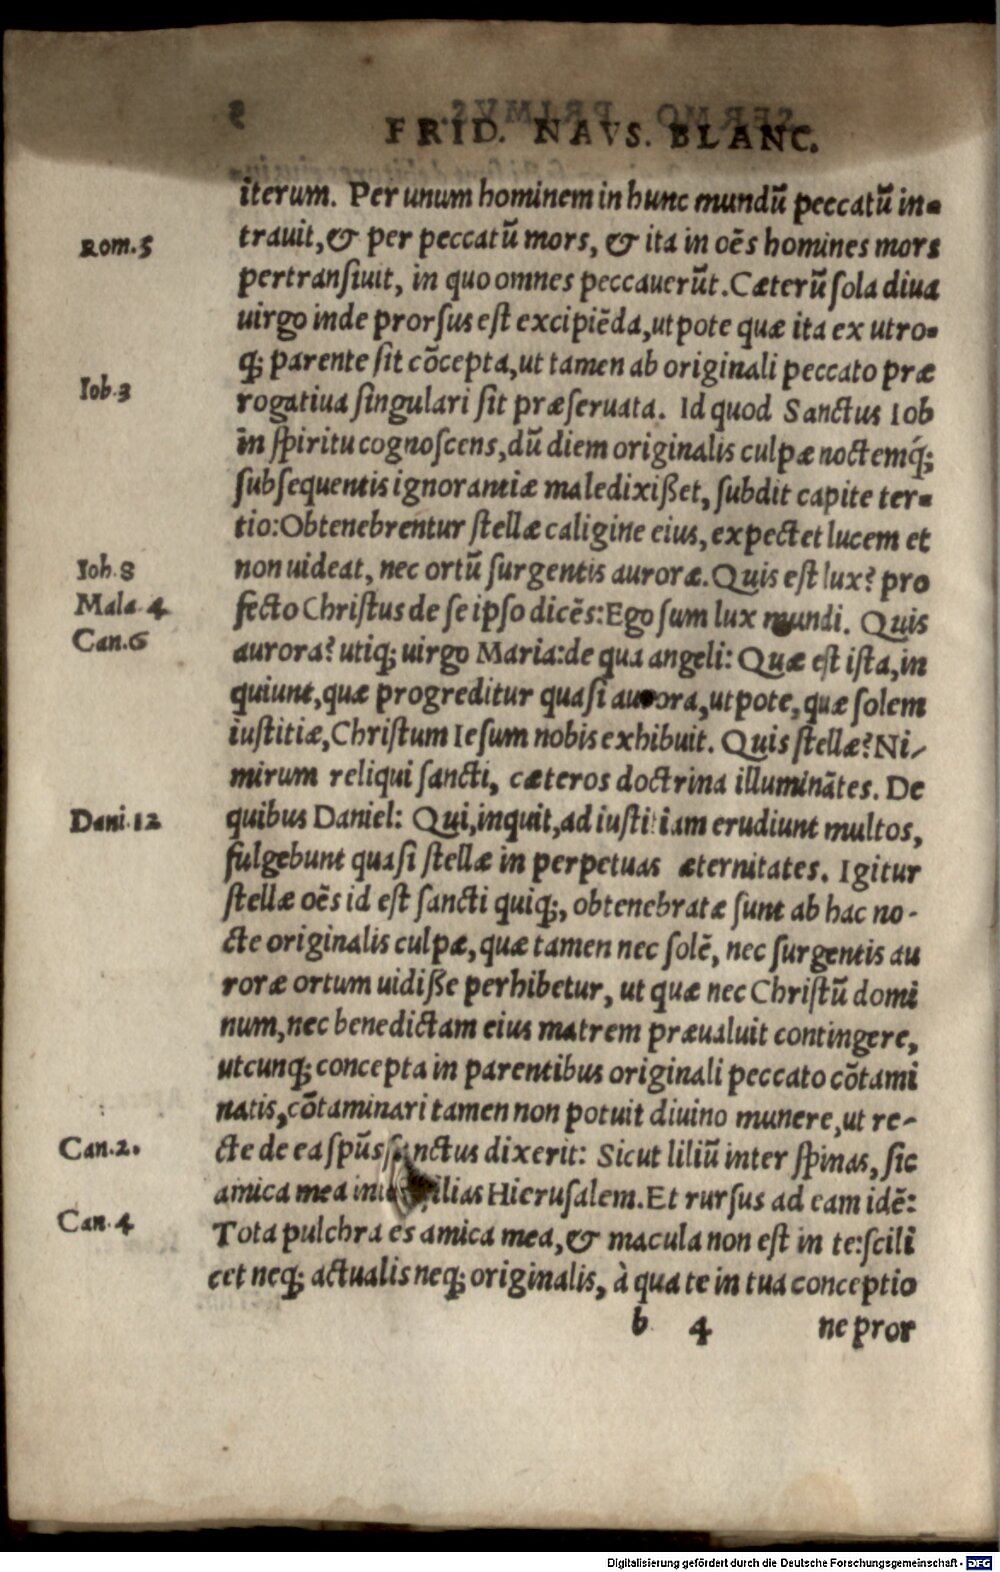 FRID. NAVS. BLANC.
iterum. Per unum hominem in hunc mundũ peccatũ in-
Rom.5
trauit,& per peccatũ mors, & ita in oẽs homines mors
pertransiuit, in quo omnes peccauerũt. Cæterũ sola diua
uirgo inde prorsus est excipiẽda, ut pote quæ ita ex utro-
q; parente sit cõcepta, ut tamen ab originali peccato præ
Iob.3
rogatiua singulari sit præseruata. Id quod Sanctus Iob
in spiritu cognoscens, dũ diem originalis culpæ noctemq́;
subsequentis ignorantiæ maledixißet, subdit capite ter-
tio: Obtenebrentur stellæ caligine eius, expectet lucem et
Ioh.8
non uideat, nec ortũ surgentis auroræ. Quis est lux? pro
Mala.4
fecto Christus de se ipso dicẽs: Ego sum lux mundi. Quis
Can.6
aurora? utiq; uirgo Maria: de qua angeli: Quæ est ista, in
quiunt, quæ progreditur quasi aurora, utpote, quæ solem
iustitiæ, Christum Iesum nobis exhibuit. Quis stellæ? Ni-
mirum reliqui sancti, cæteros doctrina illuminãtes. De
Dani.12
quibus Daniel: Qui, inquit, ad iustitiam erudiunt multos,
fulgebunt quasi stellæ in perpetuas æternitates. Igitur
stellæ oẽs id est sancti quiq;, obtenebratæ sunt ab hac no-
cte originalis culpæ, quæ tamen nec solẽ, nec surgentis au
roræ ortum uidiße perhibetur, ut quæ nec Christũ domi
num, nec benedictam eius matrem præualuit contingere,
utcunq; concepta in parentibus originali peccato cõtami
natis, cõtaminari tamen non potuit diuino munere, ut re-
Can.2.
cte de ea spũs sanctus dixerit: Sicut liliũ inter spinas, sic
amica mea filias Hierusalem. Et rursus ad eam idẽ:
Can.4
Tota pulchra es amica mea, & macula non est in te: scili
cet neq; actualis neq; originalis, à qua te in tua conceptio
b 4 ne pror
Digitalisierung gefördert durch die Deutsche Forschungsgemeinschaft - DFG